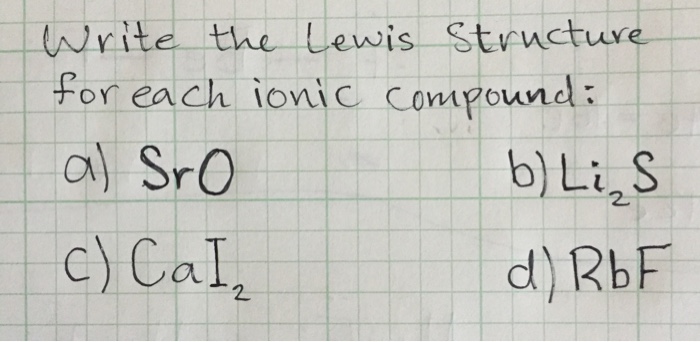 Write the Lewis Structure
for each ionic compound:
a) SrO b) Li₂S
c) CaI₂ d) RbF